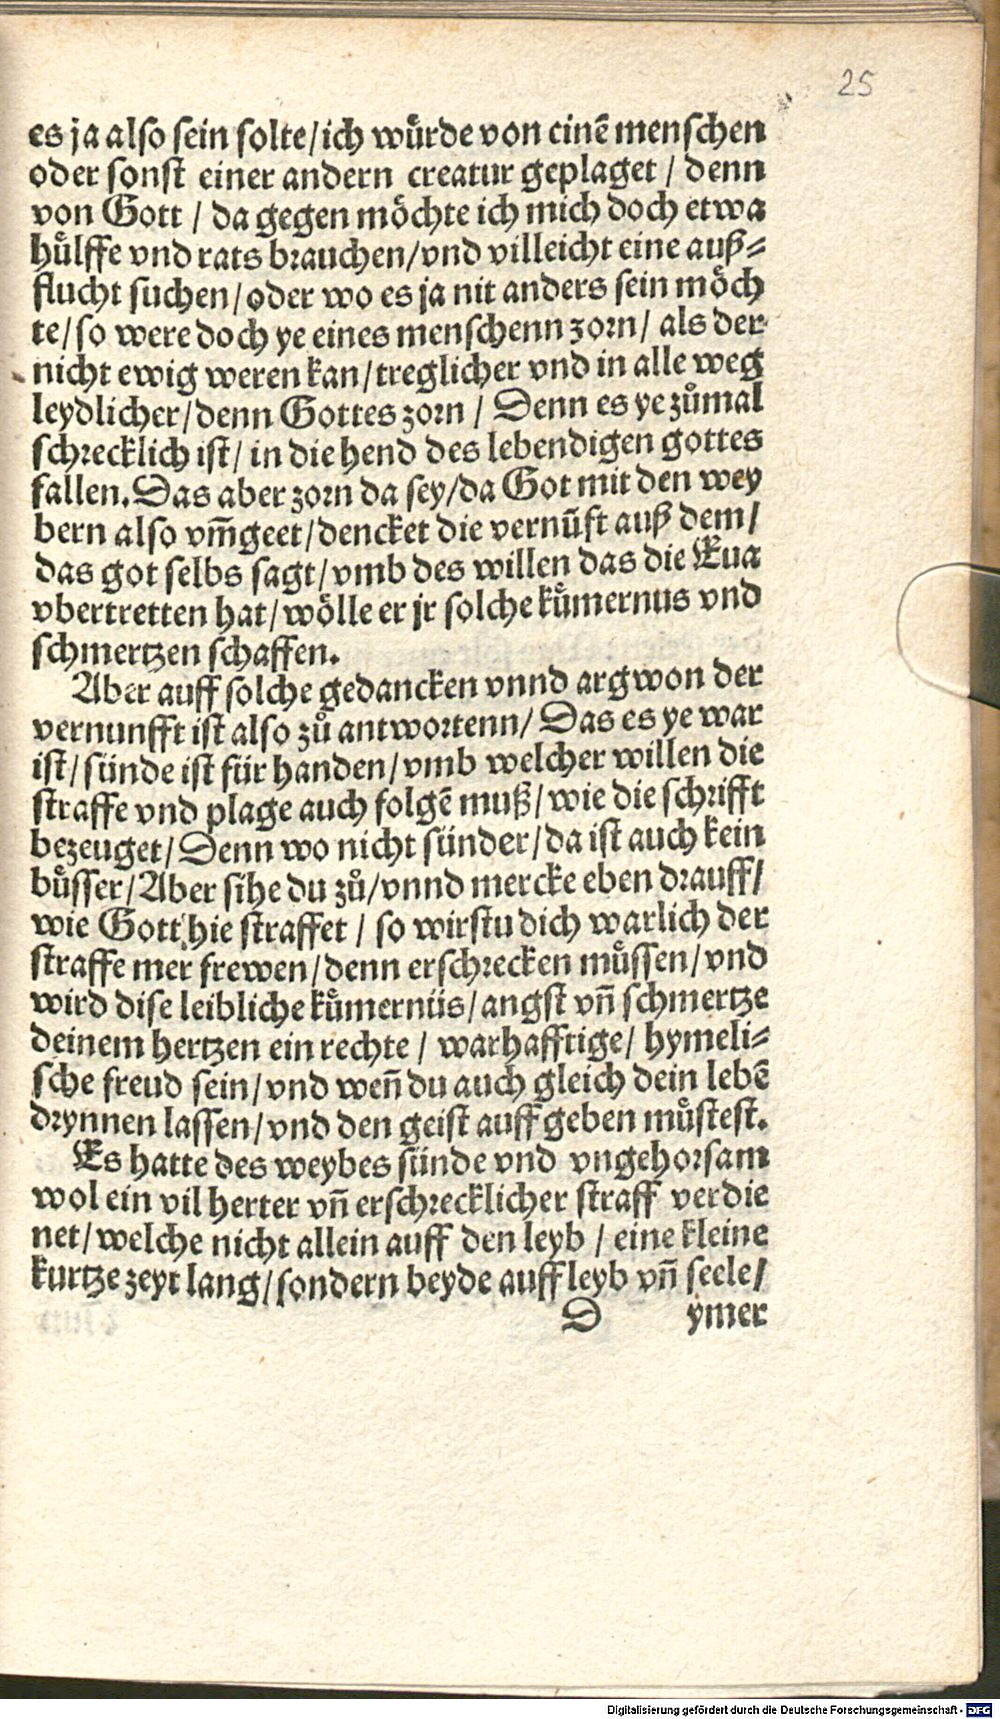 25
es ja also sein solte/ich wuͤrde von einē menschen
oder sonst einer andern creatur geplaget / denn
von Gott / da gegen moͤchte ich mich doch etwa
huͤlffe vnd rats brauchen/vnd villeicht eine auß⸗
flucht suchen/oder wo es ja nit anders sein moͤch
te/so were doch ye eines menschenn zorn/ als der
nicht ewig weren kan/treglicher vnd in alle weg
leydlicher/denn Gottes zorn / Denn es ye zůmal
schrecklich ist/ in die hend des lebendigen gottes
fallen. Das aber zorn da sey/da Got mit den wey
bern also vm̄geet/dencket die vernūft auß dem/
das got selbs sagt/vmb des willen das die Eua
vbertretten hat/woͤlle er jr solche kuͤmernus vnd
schmertzen schaffen.
Aber auff solche gedancken vnnd argwon der
vernunfft ist also zů antwortenn/ Das es ye war
ist/sünde ist für handen/vmb welcher willen die
straffe vnd plage auch folgē muß/wie die schrifft
bezeuget/Denn wo nicht sünder/da ist auch kein
buͤsser/Aber sihe du zů/vnnd mercke eben drauff/
wie Gott hie straffet / so wirstu dich warlich der
straffe mer frewen/denn erschrecken muͤssen/vnd
wird dise leibliche kuͤmernüs/angst vn̄ schmertze
deinem hertzen ein rechte / warhafftige/ hymeli⸗
sche freud sein/vnd wen̄ du auch gleich dein lebē
drynnen lassen/vnd den geist auff geben muͤstest.
Es hatte des weybes sünde vnd vngehorsam
wol ein vil herter vn̄ erschrecklicher straff verdie
net/welche nicht allein auff den leyb / eine kleine
kurtze zeyt lang/sondern beyde auff leyb vn̄ seele/
D ymer
Digitalisierung gefördert durch die Deutsche Forschungsgemeinschaft - DFG